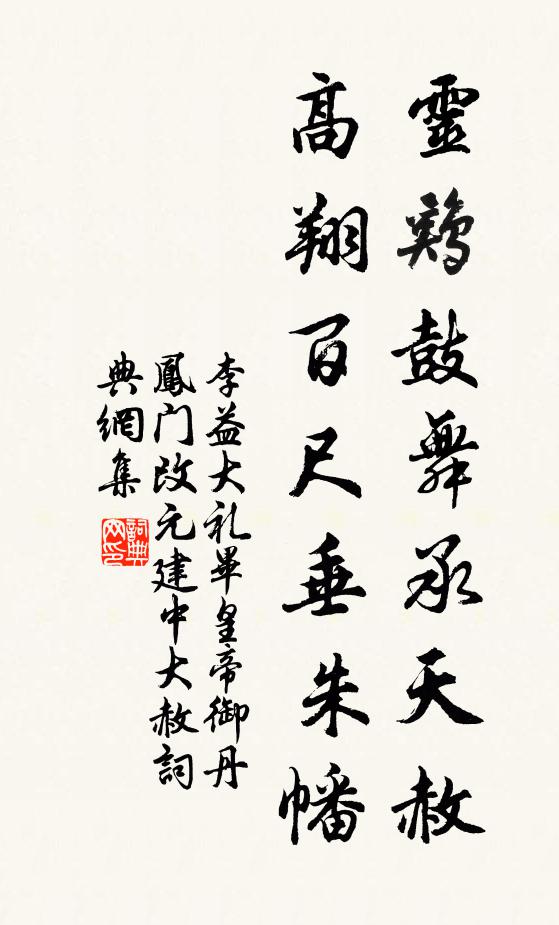 靈鷄鼓舞承天赦
高翔百尺垂朱幡
李益大礼畢皇帝御丹
鳳门改元建中大赦詞
典網集
詞典
网印